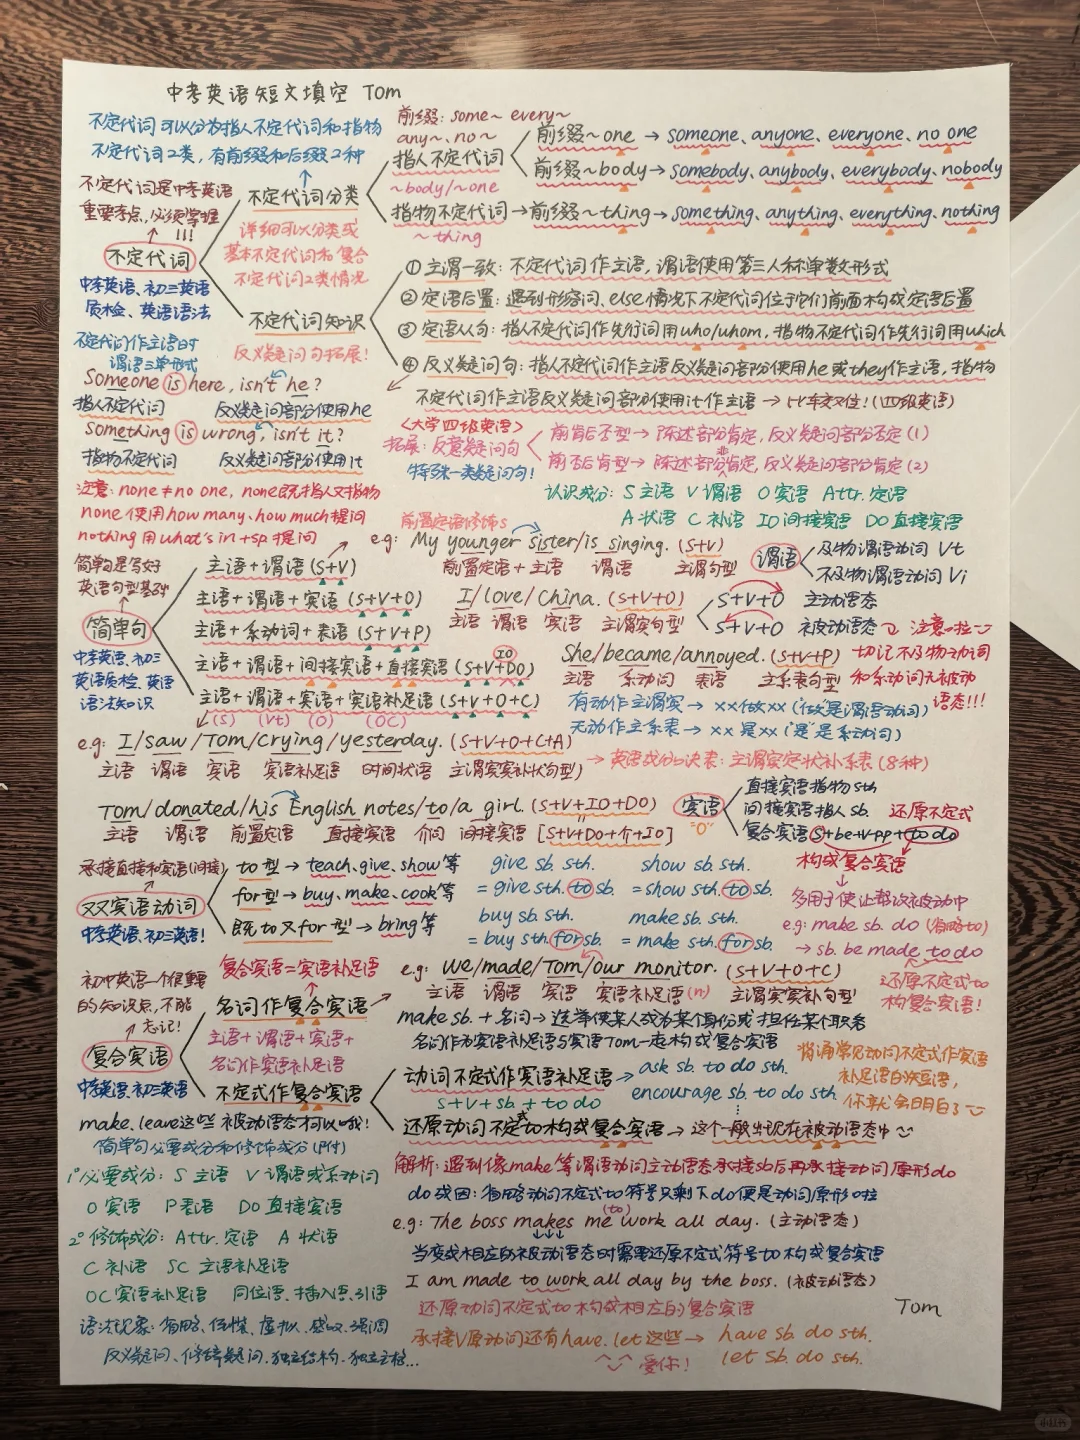 中考英语短文填空 Tom
不定代词可以分为指人不定代词和指物
不定代词2类，有前缀和后缀2种
不定代词是中考英语
重要考点，必须掌握
!!!
不定代词
中考英语、初三英语
质检、英语语法
不定代词分类
详细可以分类或
基本不定代词和复合
不定代词2类情况
前缀: some~ every~
any~、no~
指人不定代词
~body/~one
前缀~one → someone、anyone、everyone、no one
前缀~body → somebody、anybody、everybody、nobody
指物不定代词 → 前缀~thing → something、anything、everything、nothing
~thing
不定代词知识
反义疑问句拓展!
① 主谓一致: 不定代词作主语，谓语使用第三人称单数形式
② 定语后置: 遇到形容词、else情况下不定代词位于它们前面构成定语后置
③ 定语从句: 指人不定代词作先行词用who/whom，指物不定代词作先行词用which
④ 反义疑问句: 指人不定代词作主语反义疑问部分使用he或they作主语，指物
不定代词作主语反义疑问部分使用it作主语 → 比较对应!(四级英语)
不定代词作主语时
谓语三单形式
Someone is here, isn't he?
指人不定代词 反义疑问部分使用he
Something is wrong, isn't it?
指物不定代词 反义疑问部分使用it
<大学四级英语>
拓展: 反意疑问句
特殊一类疑问句!
前肯后否型 → 陈述部分肯定，反义疑问部分否定(1)
前否后肯型 → 陈述部分非肯定，反义疑问部分肯定(2)
注意: none ≠ no one, none既指人又指物
none使用how many、how much提问
nothing用what's in +sp提问
认识成分: S主语 V谓语 O宾语 Attr.定语
A状语 C补语 IO间接宾语 DO直接宾语
简单句是写好
英语句型基础
简单句
中考英语、初三
英语质检、英语
语法知识
主语+谓语 (S+V)
主语+谓语+宾语 (S+V+O)
主语+系动词+表语 (S+V+P)
IO
主语+谓语+间接宾语+直接宾语 (S+V+DO)
主语+谓语+宾语+宾语补足语 (S+V+O+C)
(S) (Vt) (O) (OC)
前置定语修饰S
eg: My younger sister/is singing. (S+V)
前置定语+主语 谓语 主谓句型
谓语
及物谓语动词 Vt
不及物谓语动词 Vi
I/love/China. (S+V+O)
主语 谓语 宾语 主谓宾句型
S+V+O 主动语态
S+V+O 被动语态
注意啦
切记不及物动词
和系动词无被动
语态!!!
She/became/annoyed. (S+V+P)
主语 系动词 表语 主系表句型
有动作主谓宾 → ××做×× (做是谓语动词)
无动作主系表 → ××是×× ('是'是系动词)
eg: I/saw/Tom/crying/yesterday. (S+V+O+C+A)
主语 谓语 宾语 宾语补足语 时间状语 主谓宾宾补状句型)
→ 英语成分口诀表: 主谓宾定状补系表(8种)
Tom/donated/his English notes/to/a girl. (S+V+IO+DO)
主语 谓语 前置定语 直接宾语 介词 间接宾语 [S+V+DO+介+IO]
宾语
"O"
直接宾语指物sth
间接宾语指人sb.
复合宾语 S+be+v-pp+to do
还原不定式
构成复合宾语
多用于使让帮次被动中
e.g: make sb. do (省略to)
→ sb. be made to do
还原不定式to
构复合宾语!
承接直接和宾语(间接)
双宾语动词
中考英语、初三英语!
to型 → teach、give、show等
for型 → buy、make、cook等
既to又for型 → bring等
give sb. sth. show sb. sth.
= give sth. to sb. = show sth. to sb.
buy sb. sth. make sb. sth.
= buy sth. for sb. = make sth. for sb.
初中英语一个很重要
的知识点，不能
忘记!
复合宾语
中考英语、初三英语
复合宾语=宾语补足语
名词作复合宾语
主语+谓语+宾语+
名词作宾语补足语
不定式作复合宾语
e.g: We/made/Tom/our monitor. (S+V+O+C)
主语 谓语 宾语 宾语补足语(n) 主谓宾宾补句型
make sb. + 名词 → 选举使某人成为某个身份或担任某个职务
名词作为宾语补足语与宾语Tom一起构成复合宾语
动词不定式作宾语补足语 → ask sb. to do sth.
S+V+sb.+to do encourage sb. to do sth.
背诵常见动词不定式作宾语
补足语的短语，
你就会明白了
式
还原动词不定to构成复合宾语 → 这个一般出现在被动语态中
make、leave这些被动语态才可以哦!
简单句必要成分和修饰成分(附)
1° 必要成分: S主语 V谓语或系动词
O宾语 P表语 DO直接宾语
2° 修饰成分: Attr.定语 A状语
C补语 SC主语补足语
OC宾语补足语 同位语、插入语、引语
语法现象: 省略、倒装、虚拟、感叹、强调
反义疑问、修辞疑问、独立结构、独立主格...
解析: 遇到像make等谓语动词主动语态承接sb后再承接动词原形do
do成因: 省略动词不定式to符号只剩下do便是动词原形啦
(to)
e.g: The boss makes me work all day. (主动语态)
当变成相应的被动语态时需要还原不定式符号to构成复合宾语
I am made to work all day by the boss. (被动语态)
还原动词不定式to构成相应的复合宾语
Tom
承接V原动词还有have、let这些 → have sb. do sth.
let sb. do sth.
爱你!
小红书